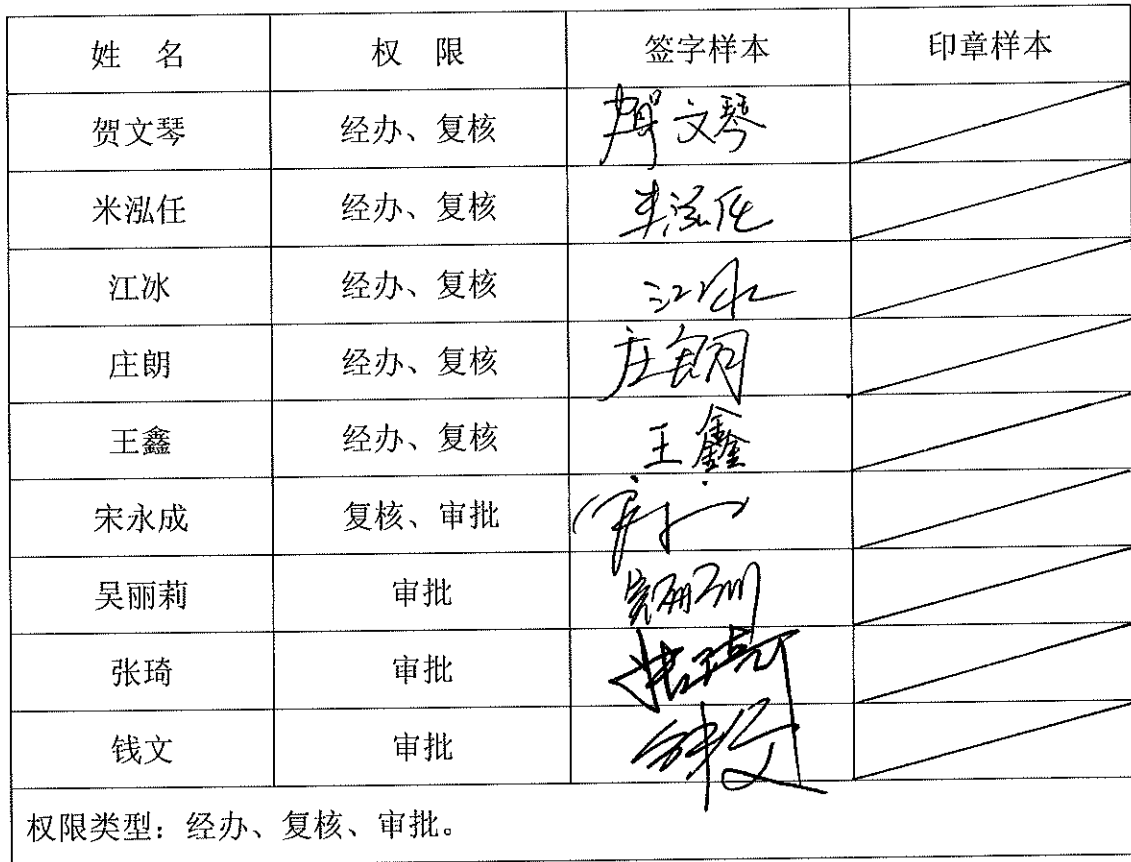 姓 名 权 限 签字样本 印章样本
贺文琴 经办、复核 贺文琴
米泓任 经办、复核 米泓任
江冰 经办、复核 江冰
庄朗 经办、复核 庄朗
王鑫 经办、复核 王鑫
宋永成 复核、审批
吴丽莉 审批
张琦 审批 张琦
钱文 审批 钱文
权限类型：经办、复核、审批。